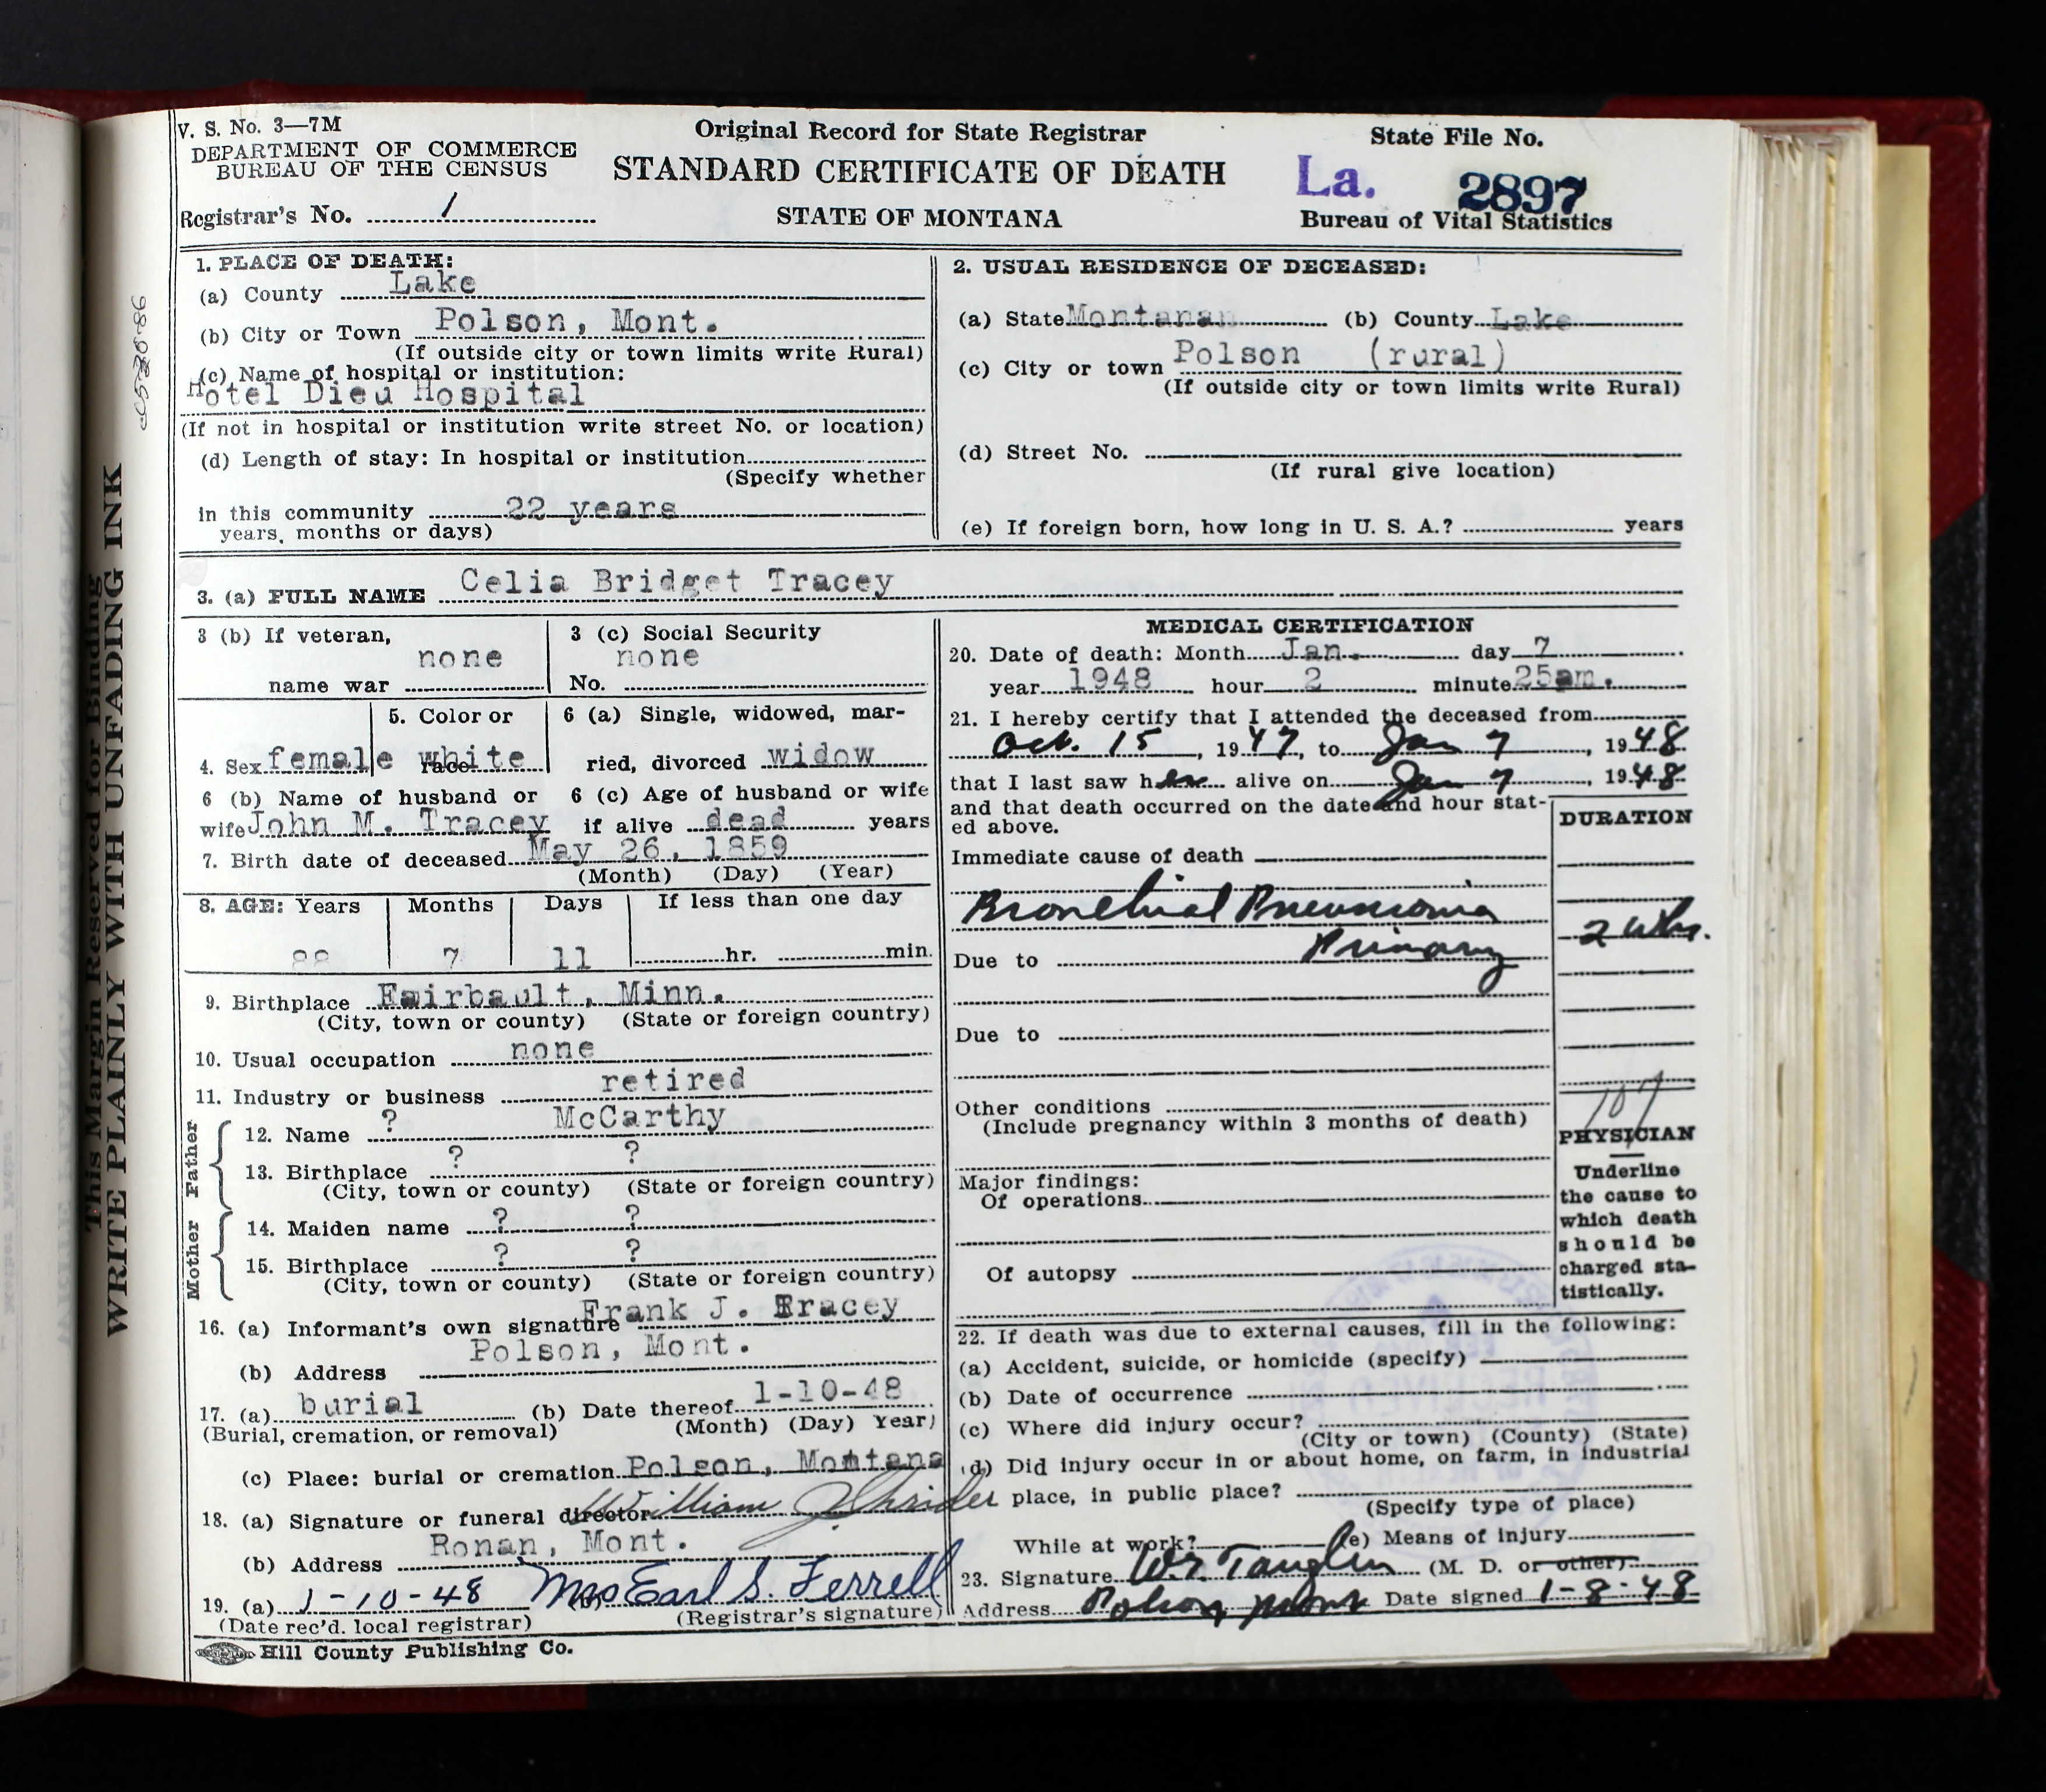 V. S. No. 3—7M
DEPARTMENT OF COMMERCE
BUREAU OF THE CENSUS
Registrar's No. 1
Original Record for State Registrar
STANDARD CERTIFICATE OF DEATH
STATE OF MONTANA
State File No.
La. 2897
Bureau of Vital Statistics
This Margin Reserved for Binding
WRITE PLAINLY WITH UNFADING INK
1. PLACE OF DEATH:
(a) County Lake
(b) City or Town Polson, Mont.
(If outside city or town limits write Rural)
(c) Name of hospital or institution:
Hotel Dieu Hospital
(If not in hospital or institution write street No. or location)
(d) Length of stay: In hospital or institution
(Specify whether
in this community 22 years
years, months or days)
2. USUAL RESIDENCE OF DECEASED:
(a) State Montana (b) County Lake
(c) City or town Polson (rural)
(If outside city or town limits write Rural)
(d) Street No.
(If rural give location)
(e) If foreign born, how long in U. S. A.? years
3. (a) FULL NAME Celia Bridget Tracey
3 (b) If veteran,
none
name war
3 (c) Social Security
none
No.
4. Sex female
5. Color or
race white
6 (a) Single, widowed, mar-
ried, divorced widow
6 (b) Name of husband or
wife John M. Tracey
6 (c) Age of husband or wife
if alive dead years
7. Birth date of deceased May 26, 1859
(Month) (Day) (Year)
8. AGE: Years Months Days If less than one day
88 7 11 hr. min.
9. Birthplace Fairbault, Minn.
(City, town or county) (State or foreign country)
10. Usual occupation none
11. Industry or business retired
Father
12. Name ? McCarthy
13. Birthplace ? ?
(City, town or county) (State or foreign country)
Mother
14. Maiden name ? ?
15. Birthplace ? ?
(City, town or county) (State or foreign country)
16. (a) Informant's own signature Frank J. Tracey
Polson, Mont.
(b) Address
17. (a) burial (b) Date thereof 1-10-48
(Burial, cremation, or removal) (Month) (Day) Year)
(c) Place: burial or cremation Polson, Montana
18. (a) Signature or funeral director William J Shrider
(b) Address Ronan, Mont.
19. (a) 1-10-48 (b) Mrs Earl S. Ferrell
(Date rec'd. local registrar) (Registrar's signature)
Hill County Publishing Co.
MEDICAL CERTIFICATION
20. Date of death: Month Jan. day 7
year 1948 hour 2 minute 25am.
21. I hereby certify that I attended the deceased from
Oct. 15, 1947, to Jan 7, 1948
that I last saw her alive on Jan 7, 1948
and that death occurred on the date and hour stat-
ed above.
DURATION
Immediate cause of death
Bronchial Pneumonia
2 wks.
Due to Primary
Due to
Other conditions
(Include pregnancy within 3 months of death)
107
PHYSICIAN
Underline
the cause to
which death
should be
charged sta-
tistically.
Major findings:
Of operations
Of autopsy
22. If death was due to external causes, fill in the following:
(a) Accident, suicide, or homicide (specify)
(b) Date of occurrence
(c) Where did injury occur?
(City or town) (County) (State)
(d) Did injury occur in or about home, on farm, in industrial
place, in public place?
(Specify type of place)
While at work? (e) Means of injury
23. Signature (M. D. or other)
Address Polson Mont Date signed 1-8-48